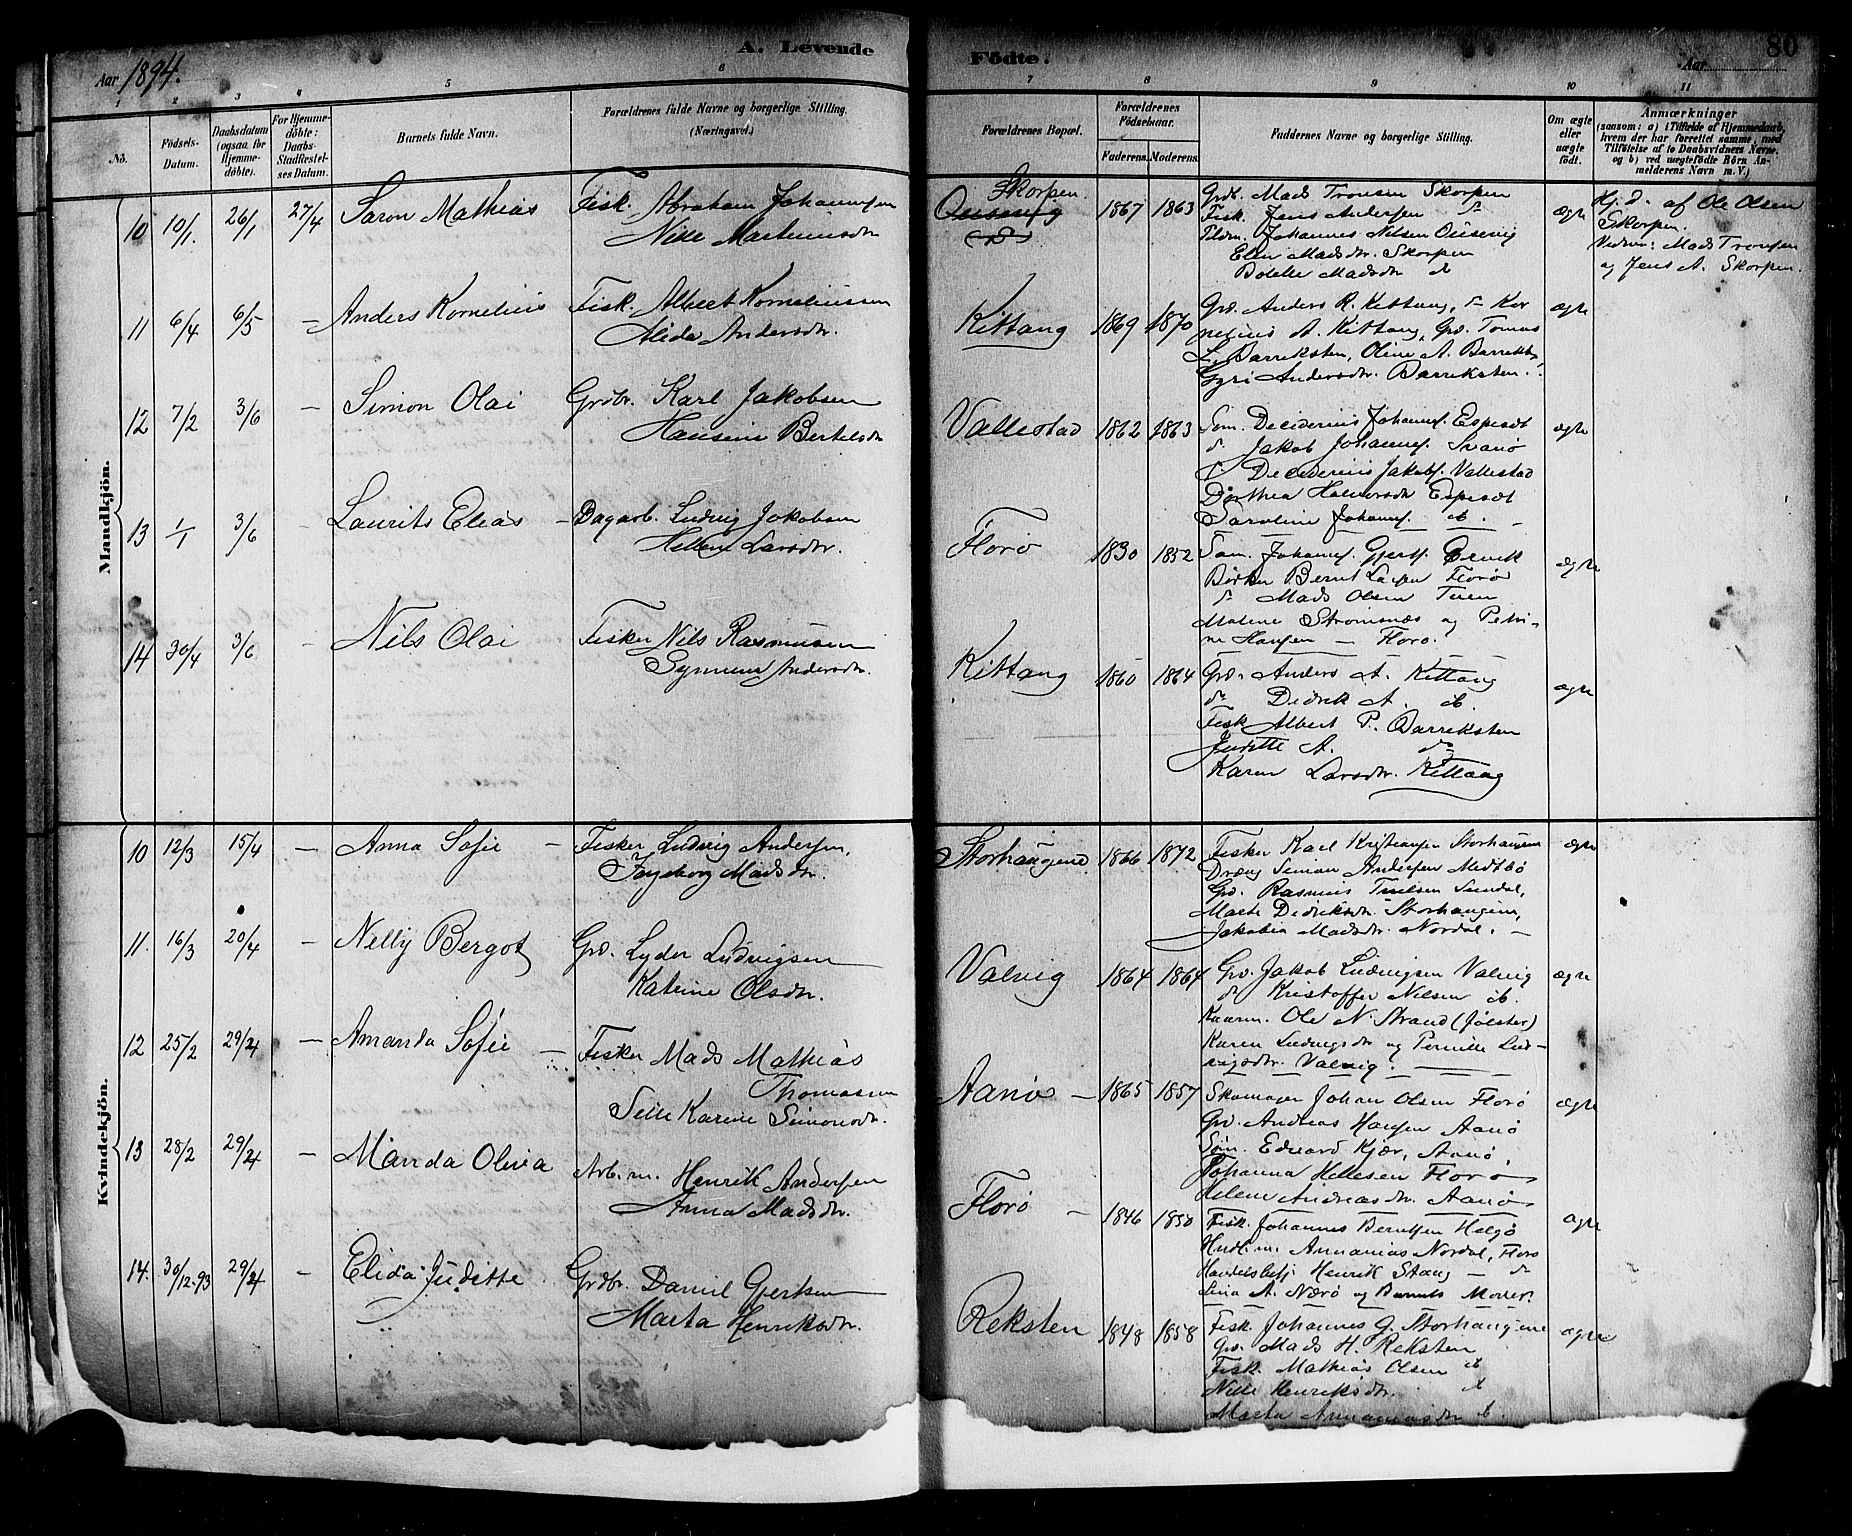 A. Levende
Födte.
80
Aar 1894.
Aar
1
2
3
4
5
6
7
8
9
10
11
No.
Födsels-
Datum.
Daabsdatum
(ogsaa for
Hjemme-
döbte).
For Hjemme-
döbte:
Daabs-
Stadfestel-
ses Datum.
Barnets fulde Navn.
Forældrenes fulde Navne og borgerlige Stilling.
(Næringsvei.)
Forældrenes Bopæl.
Forældrenes
Födselsaar.
Faderens.
Moderens.
Faddernes Navne og borgerlige Stilling.
Om ægte
eller
uægte
födt.
Anmærkninger
(saasom: a) i Tilfælde af Hjemmedaab,
hvem der har forrettet samme, med
Tilföielse af to Daabsvidners Navne,
og b) ved uægtefödte Börn An-
melderens Navn m. V.)
Mandkjön.
10 10/1. 26/1 27/4 Saron Mathias Fisk. Abraham Johannesen
Nikè Martinusdtr
Skorpen
1867 1863 Grdb. Mads Tronsen Skorpen
Fisk. Jens Andersen do
Johannes Nilsen Ousevig
Elen Madsdtr. Skorpen
Bolette Madsdtr do
ægte
Hj. d. af Ole Olsen
Skorpen.
Vidner: Mads Tronsen
og Jens A. Skorpen.
11 6/4 6/5 – Anders Kornelius Fisk. Albert Korneliussen
Alida Andersdtr.
Kittang 1869 1870 Grd. Anders R. Kittang, do Kor
nelius A. Kittang, Grd. Tomas
L. Barreksten, Oline A. Barrekst.
Gyri Andersdtr. Barreksten.
ægte
12 7/2 3/6 – Simon Olai Grdbr. Karl Jakobsen
Hansine Bertelsdtr
Vallestad 1862 1863 Søm. Deciderius Johannes. Espeset
do Jakob Johannes. Svanø
do Deciderius Jakobs. Vallestad
Dorthea Halvorsdtr Espeset
Saroline Johannes. ib.
ægte
13 1/1 3/6 – Laurits Elias – Dagarb. Ludvig Jakobsen
Hellene Larsdtr.
Florø 1830 1852 Søm. Johannes. Gjerts.
Bødker Bernt Larsen Florø
do Mads Olsen
Malene Strømsnæs og Petri-
ne Hansen – Florø.
ægte
14 30/4 3/6 – Nils Olai Fisker Nils Rasmussen
Synneva Andersdtr.
Kittang 1860 1864 Grd. Anders A. Kittang
do Didrik A. ib.
Fisk. Albert P. Barreksten
Juditte A. do
Karen Larsdtr. Kittang
ægte
Kvindekjön.
10 12/3 15/4 – Anna Sofie – Fisker Ludvig Andersen,
Ingeborg Madsdtr.
Storhaugene 1866 1872 Fisker Karl Kristiansen Storhaugene
Dræng Simon Andersen Medtbø
Grd. Rasmus Sundal,
Marte Didriksdtr. Storhaugene,
Jakobia Madsdtr. Nordal. –
ægte
11. 16/3 20/4 – Nelly Bergot Grd. Lyder Ludvigsen
Katrine Olsdtr.
Valvig 1864 1864 Grd. Jakob Ludvigsen Valvig
do Kristoffer Nilsen ib.
Ole N. Strand (Jølster)
Karen Ludvigsdtr og Pernille Lud-
vigsdtr. Valvig.
ægte
12 25/2 29/4 – Amanda Sofie – Fisker Mads Mathias
Thomassen
Selle Karine Simonsdtr.
Aanø – 1865 1857 Skomager Johan Olsen Florø
Grd. Andreas Hansen Aanø
Søm. Edvard Kjær, Aanø,
Johanna Hellesen Florø
Helene Andreasdtr. Aanø
ægte
13 28/2 29/4 – Manda Olivia Arb.m. Henrik Andersen
Anna Madsdtr.
Florø – 1846 1850 Fisk. Johannes Berntsen Helgø
Hndl.m. Annanias Nordal, Florø
Handelsbetj. Henrik Stang – do
Lina A. Nærø og Barnets Moder.
ægte
14. 30/12-93 29/4 – Elida Juditte Grdbr. Daniel Gjertsen
Marta Henriksdtr.
Reksten 1848 1858 Fisk. Johannes G. Storhaugene
Grd. Mads H. Reksten
Fisk. Mathias Olsen ib
Nille Henriksdtr. ib
Marta Annaniasdtr ib.
ægte